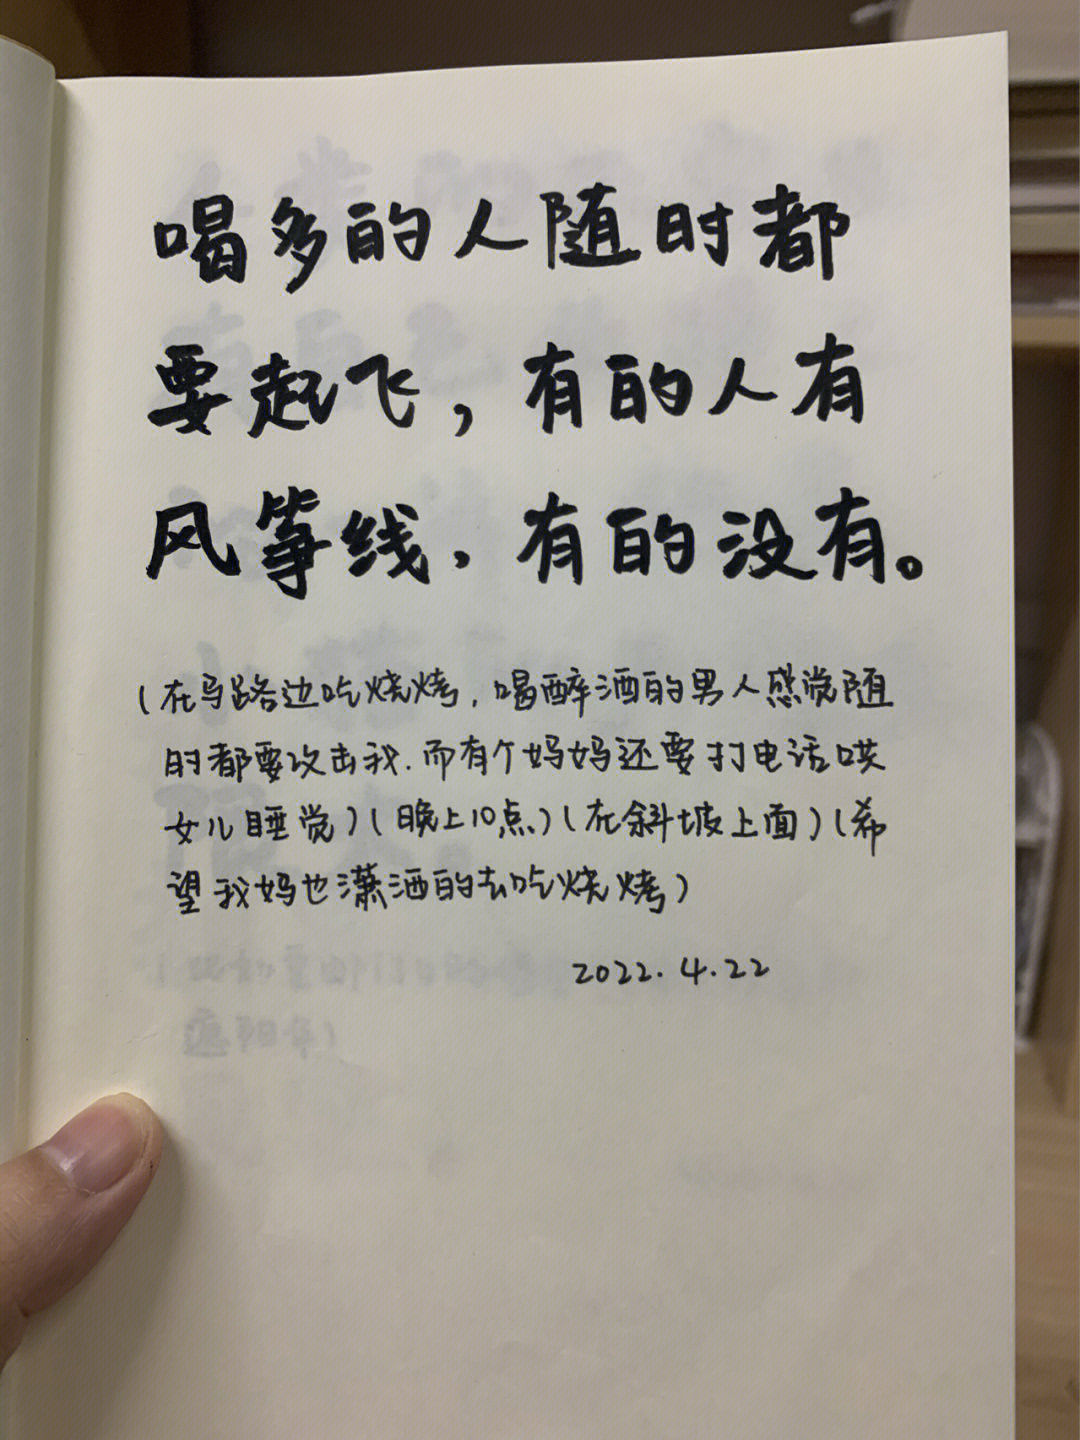 喝多的人随时都
要起飞，有的人有
风筝线，有的没有。
（在马路边吃烧烤，喝醉酒的男人感觉随
时都要攻击我.而有个妈妈还要打电话哄
女儿睡觉）（晚上10点）（在斜坡上面）（希
望我妈也潇洒的去吃烧烤）
2022.4.22